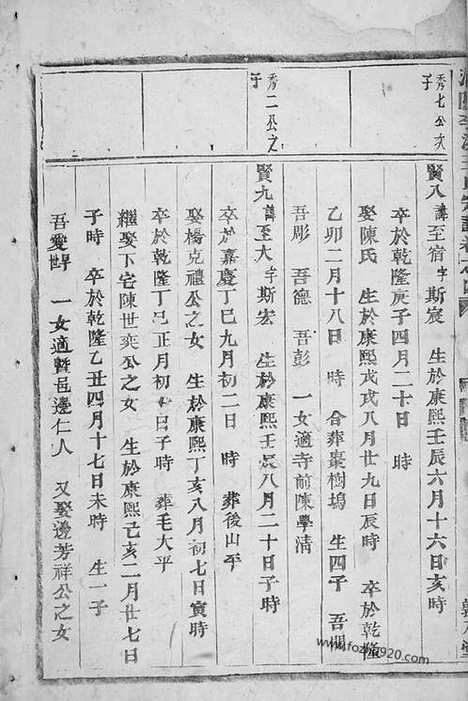 秀七公次
子
賢八諱至宿字斯宸 生於康熙壬辰六月十六日亥時
卒於乾隆庚子四月二十日 時
娶陳氏 生於康熙戊戌八月廿九日辰時 卒於乾隆
乙卯二月十八日 時 合葬棗樹塢 生四子 吾開
吾彫 吾德 吾彭 一女適寺前陳學清
秀二公之
子
賢九諱至大字斯宏 生於康熙壬辰八月二十日子時
卒於嘉慶丁巳九月初二日 時 葬後山平
娶楊克禮公之女 生於康熙丁亥八月初七日寅時
卒於乾隆丁巳正月初 日子時 葬毛大平
繼娶下宅陳世奕公之女 生於康熙己亥二月廿七日
子時 卒於乾隆乙丑四月十七日未時 生一子
吾愛 一女適暨邑邊仁人 又娶邊芳祥公之女
www.fozhu920.com